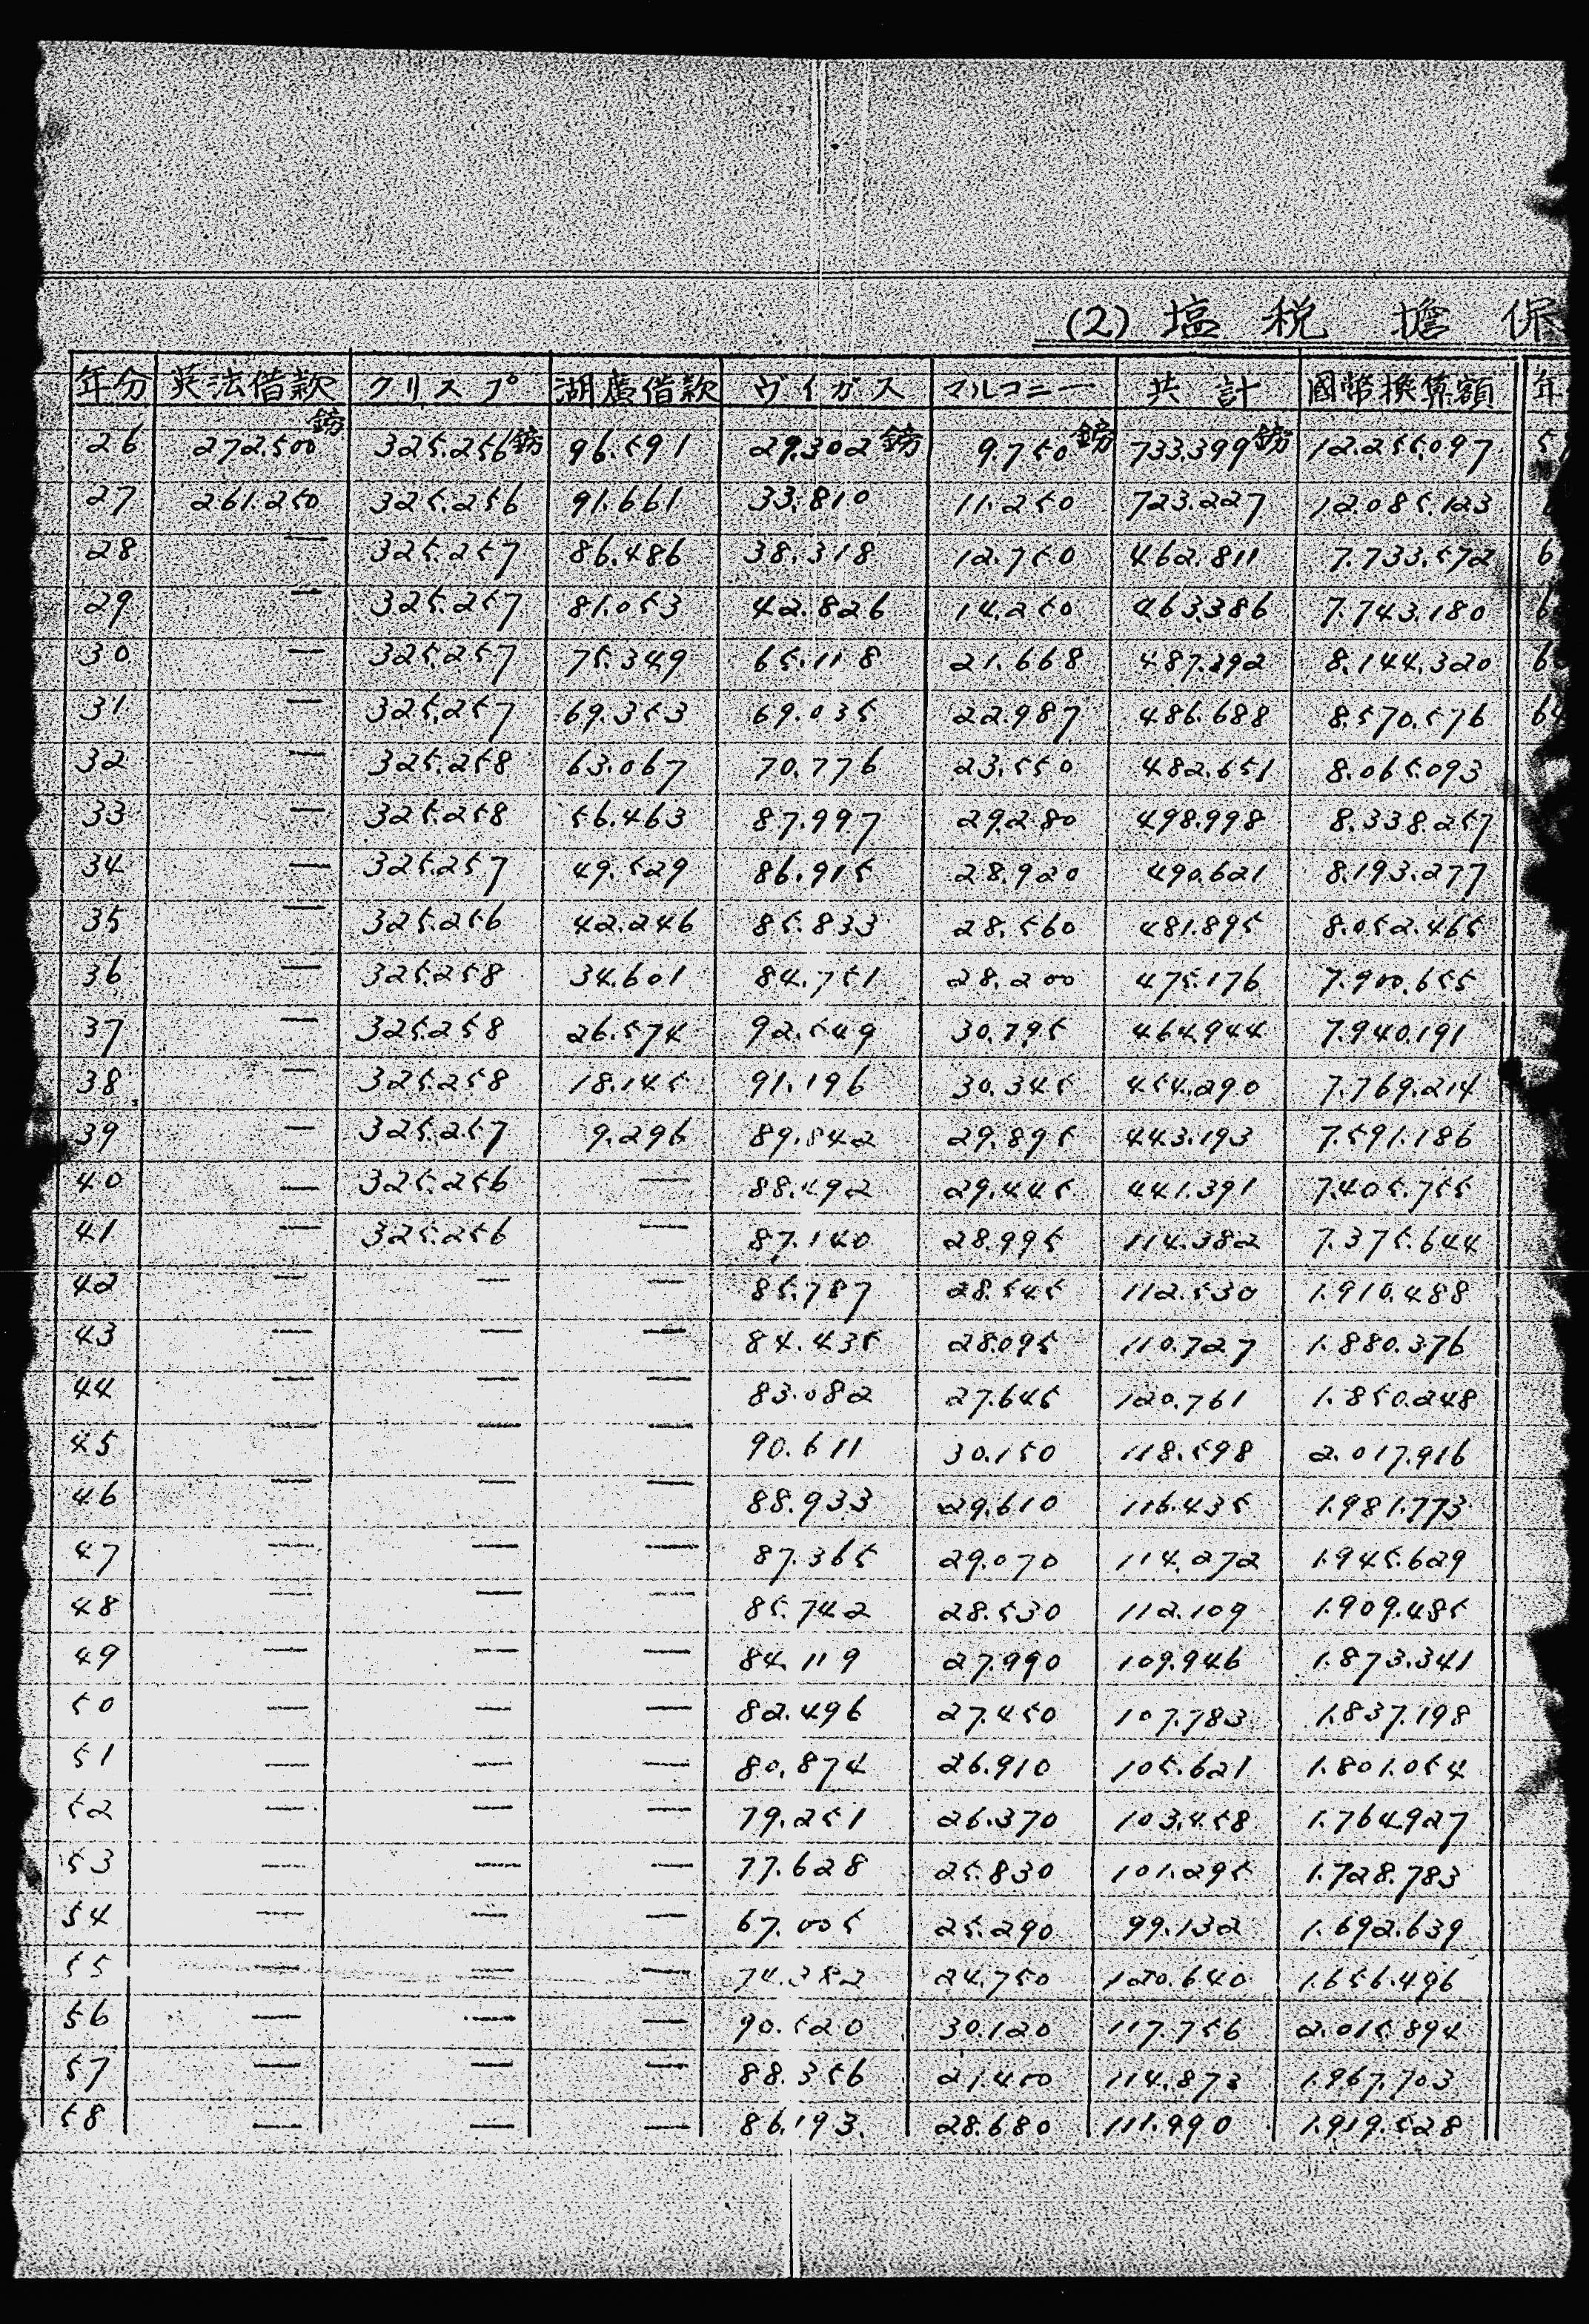 (2) 塩税擔保
年分 英法借款 クリスプ 湖廣借款 ヴイガス マルコニー 共計 國幣換算額 年
26 272.500鎊 325.256鎊 96.591 29.302鎊 9.750鎊 733.399鎊 12.255.097 5
27 261.250 325.256 91.661 33.810 11.250 723.227 12.085.123
28 — 325.257 86.486 38.318 12.750 462.811 7.733.572 6
29 — 325.257 81.053 42.826 14.250 463.386 7.743.180 6
30 — 325.257 75.349 65.118 21.668 487.392 8.144.320 6
31 — 325.257 69.353 69.035 22.987 486.688 8.570.576 64
32 — 325.258 63.067 70.776 23.550 482.651 8.065.093
33 — 325.258 56.463 87.997 29.280 498.998 8.338.257
34 — 325.257 49.529 86.915 28.920 490.621 8.193.277
35 — 325.256 42.246 85.833 28.560 481.895 8.052.465
36 — 325.258 34.601 84.751 28.200 475.176 7.900.655
37 — 325.258 26.574 92.549 30.795 464.944 7.940.191
38 — 325.258 18.145 91.196 30.345 454.290 7.769.214
39 — 325.257 9.296 89.842 29.895 443.193 7.591.186
40 — 325.256 — 88.492 29.445 441.391 7.405.755
41 — 325.256 — 87.140 28.995 114.382 7.375.644
42 — — — 85.787 28.545 112.530 1.910.488
43 — — — 84.435 28.095 110.727 1.880.376
44 — — — 83.082 27.645 120.761 1.850.248
45 — — — 90.611 30.150 118.598 2.017.916
46 — — — 88.933 29.610 116.435 1.981.773
47 — — — 87.365 29.070 114.272 1.945.629
48 — — — 85.742 28.530 112.109 1.909.485
49 — — — 84.119 27.990 109.946 1.873.341
50 — — — 82.496 27.450 107.783 1.837.198
51 — — — 80.874 26.910 105.621 1.801.054
52 — — — 79.251 26.370 103.458 1.764.927
53 — — — 77.628 25.830 101.295 1.728.783
54 — — — 67.005 25.290 99.132 1.692.639
55 — — — 74.382 24.750 120.640 1.656.496
56 — — — 90.520 30.120 117.756 2.015.894
57 — — — 88.356 21.400 114.873 1.967.703
58 — — — 86.193. 28.680 111.990 1.919.528